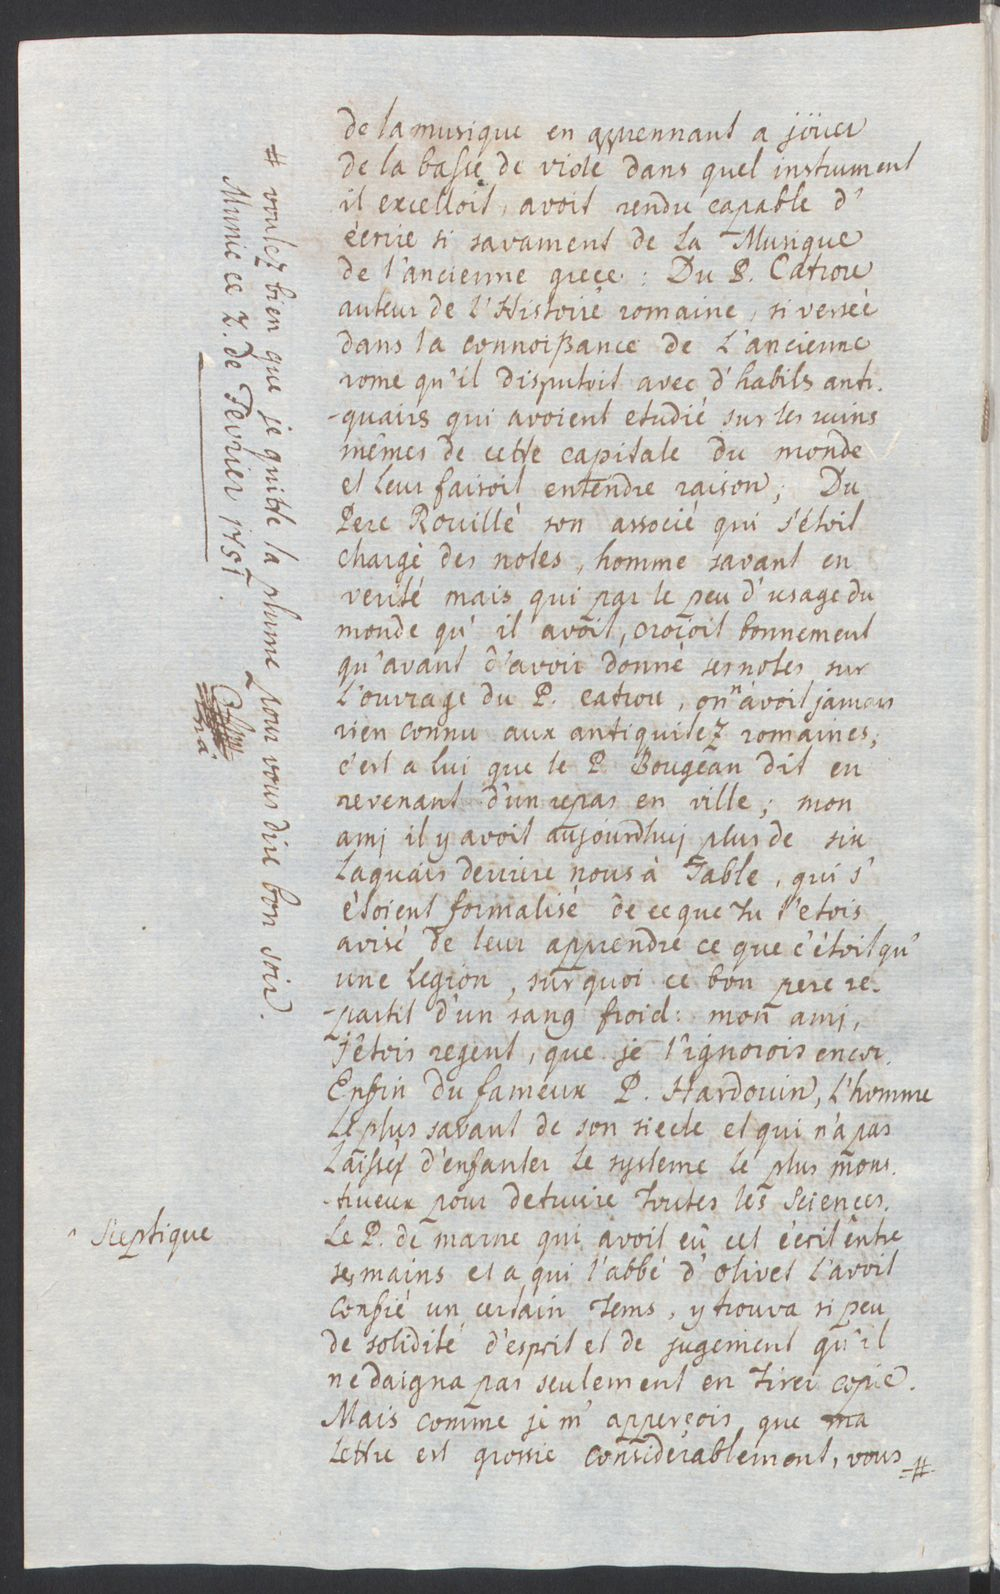 de la musique en apprennant a jöuer
de la basse de viole dans quel instrument
il excelloit, avoit rendu capable d'
écrire si savament de La Musique
de l'ancienne grece : Du P. Catrou
auteur de l'Histoire romaine, si verseé
dans la connoißance de L'ancienne
rome qu'il disputoit avec d'habils anti-
-quairs qui avoient etudié sur les ruins
mêmes de cette capitale du monde
et leur faisoit entendre raison; Du
Pere Rouillé son associé qui s'étoit
chargé des notes, homme savant en
verité mais qui par le peu d'usage du
monde qu'il avoit, croïoit bonnement
qu'avant d'avoir donné ses notes sur
L'ouvrage du P. catrou, on n'avoit jamais
rien connu aux antiquitez romaines;
c'est a lui que le P Bougean dit en
revenant d'un repas en ville; mon
ami il y avoit aujourdhuj plus de six
Laquais derrire nous à Table, qui s'
étoient formalisé de ce que Tu t'etois
avisé de leur apprendre ce que c'étoit qu'
une legion, sur quoi ce bon pere re-
-partit d'un sang froid: mon ami,
J'étois regent, que je l'ignorois encor.
Enfin du fameux P. Hardouin, L'homme
Le plus savant de son siecle et qui n'a pas
Laissé d'enfanter le systeme le plus mons-
-trueux pour detruire Toutes les Sciences.
Le P. de marne qui avoit eû cet écrit entre
ses mains et a qui l'abbé d'olivet l'avoit
Confié un certain Tems, y trouva si peu
de solidité d'esprit et de jugement qu'il
ne daigna pas seulement en Tirer copie.
Mais comme je m'apperçois que ma
Lettre est grossie considerablement, vous #
^ Sceptique
# voulez bien que je quitte la plume pour vous dire bon soir.
Munic ce 2. de Fevrier 1751.